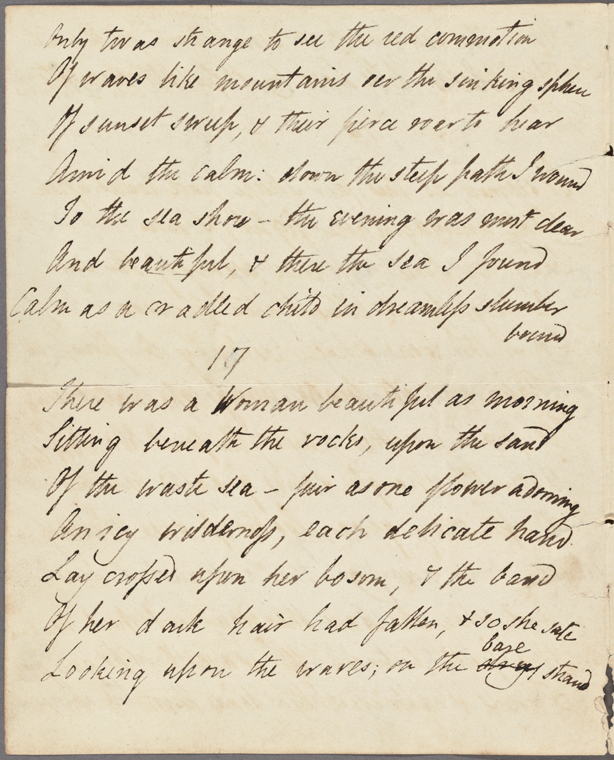 Only twas strange to see the red commotion
Of waves like mountains oer the sinking sphere
Of sunset sweep, & their fierce roar to hear
Amid the calm: down the steep path I wound
To the sea shore – the evening was most clear
And beautiful, & there the sea I found
Calm as a cradled child in dreamless slumber
bound
17
There was a Woman beautiful as morning
Sitting beneath the rocks, upon the sand
Of the waste sea – fair as one flower adorning
An icy wilderness, each delicate hand
Lay crossed upon her bosom, & the band
Of her dark hair had fallen, & so she sate
bare
Looking upon the waves; on the strand